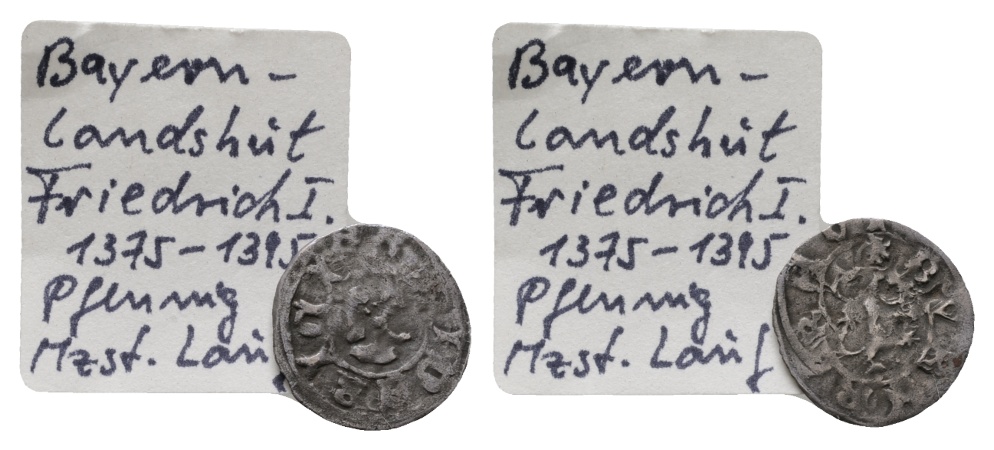 Bayern -
Landshut
Friedrich I.
1375 - 1395
Pfennig
Mzst. Lauf
Bayern -
Landshut
Friedrich I.
1375 - 1395
Pfennig
Mzst. Lauf